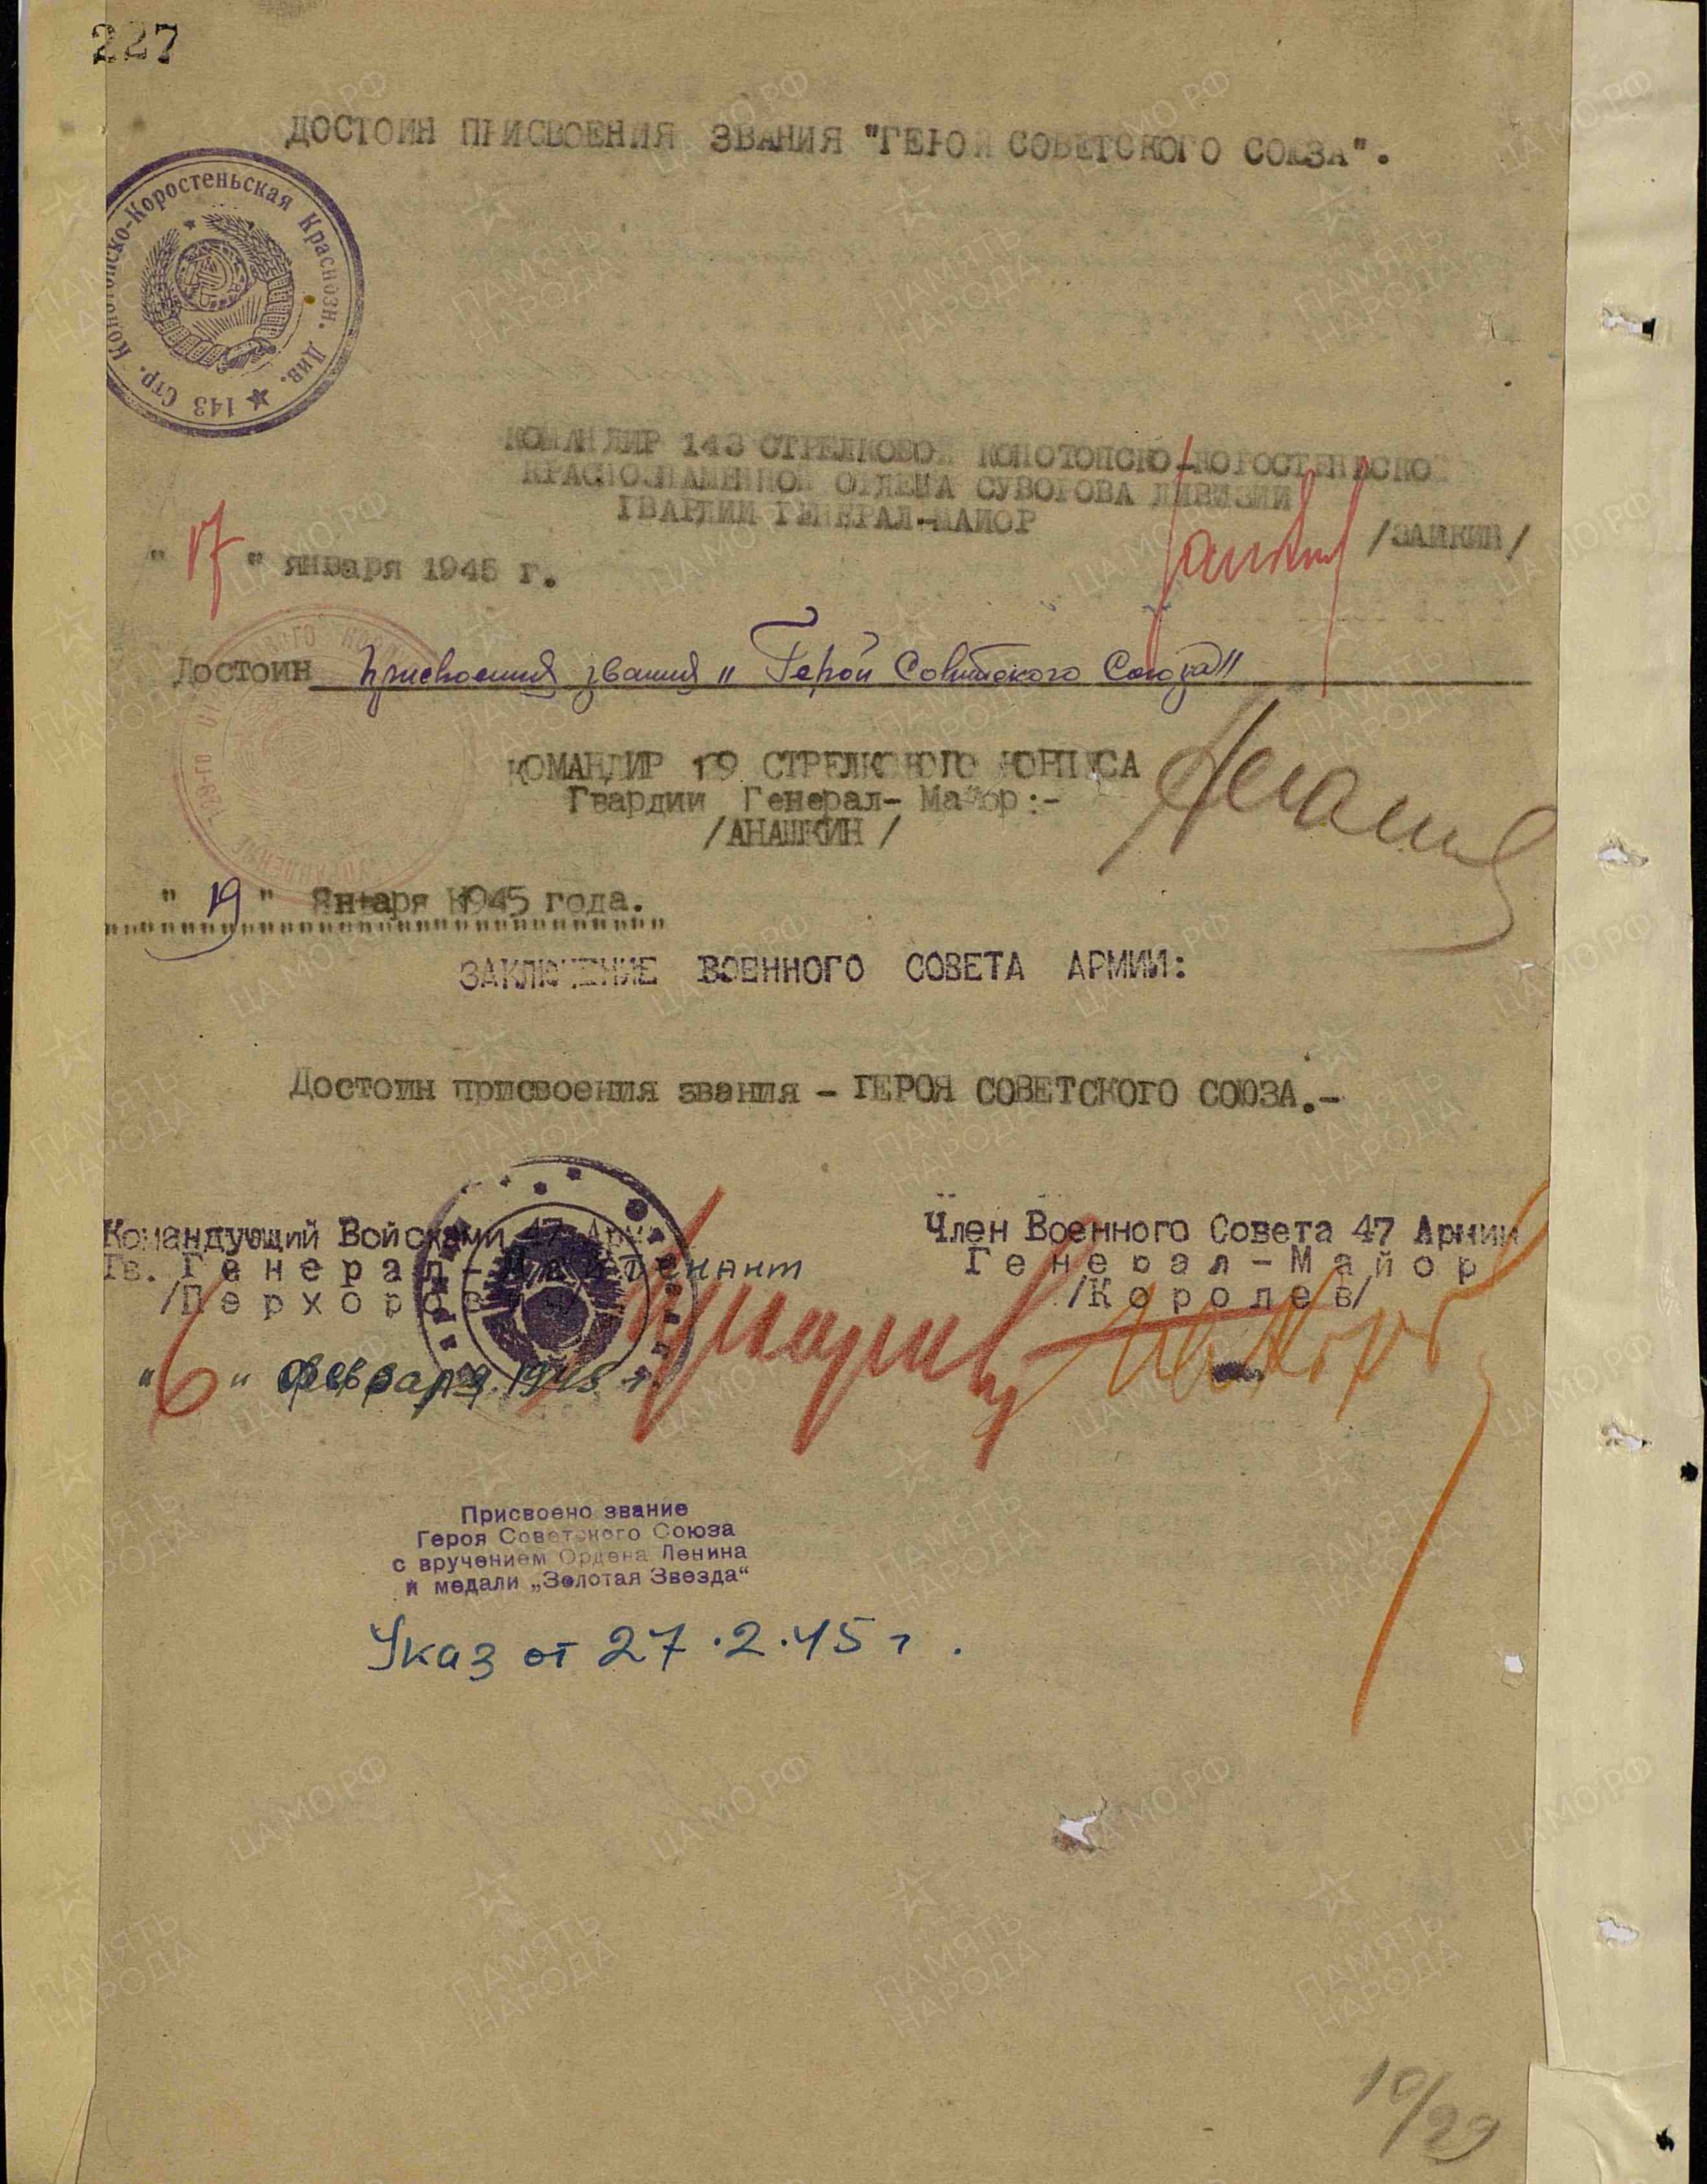 227
ДОСТОИН ПРИСВОЕНИЯ ЗВАНИЯ "ГЕРОЙ СОВЕТСКОГО СОЮЗА".
143 Стр. Конотопско-Коростеньская Краснозн. Див.
КОМАНДИР 143 СТРЕЛКОВОЙ КОНОТОПСКО-КОРОСТЕНЬСКОЙ
КРАСНОЗНАМЕННОЙ ОРДЕНА СУВОРОВА ДИВИЗИИ
ГВАРДИИ ГЕНЕРАЛ-МАЙОР
/ЗАИКИН/
"17" января 1945 г.
Достоин присвоения звания „Герой Советского Союза"
КОМАНДИР 129 СТРЕЛКОВОГО КОРПУСА
Гвардии Генерал-Майор:-
/АНАШКИН/
"19" Января 1945 года.
ЗАКЛЮЧЕНИЕ ВОЕННОГО СОВЕТА АРМИИ:
Достоин присвоения звания - ГЕРОЯ СОВЕТСКОГО СОЮЗА.-
Командующий Войсками 47 Арм
Гв. Генерал-Лейтенант
/Перхорович/
Член Военного Совета 47 Армии
Генерал-Майор
/Королев/
"6" февраля 1945 г.
Присвоено звание
Героя Советского Союза
с вручением Ордена Ленина
и медали „Золотая Звезда“
Указ от 27.2.45 г.
10/29
ЦАМО.РФ
ПАМЯТЬ НАРОДА